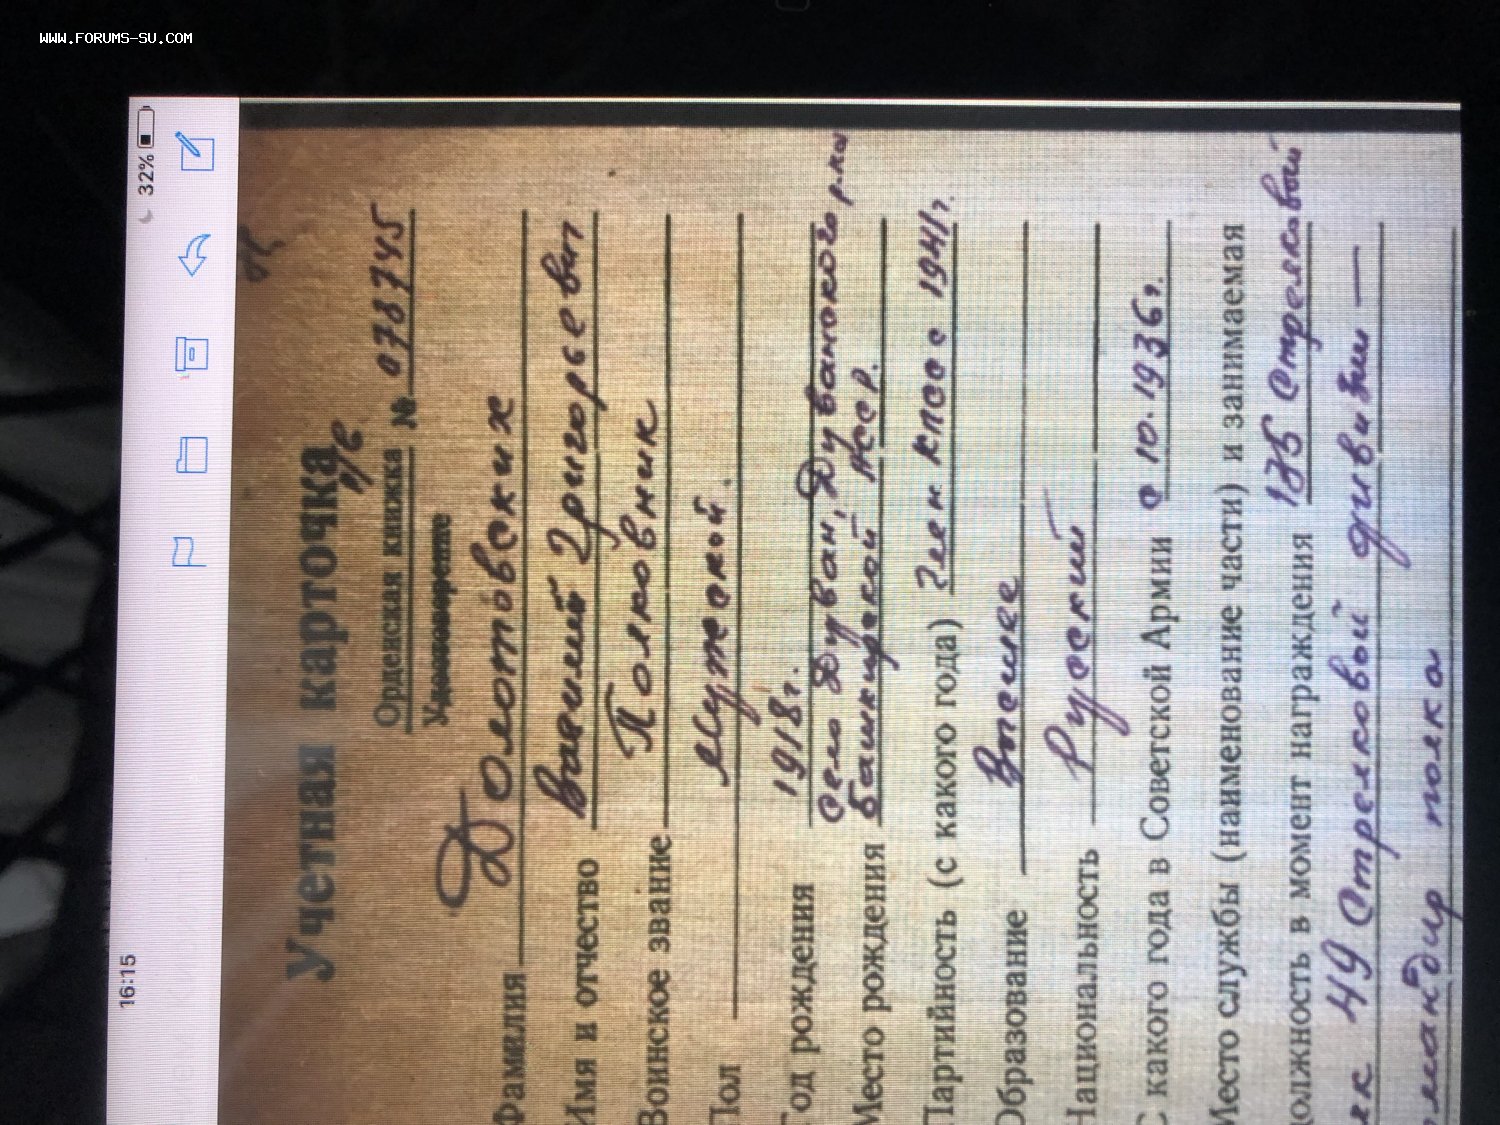 WWW.FORUMS-SU.COM
16:15 32%
Учетная карточка
Орденская книжка № 078745
Удостоверение
Фамилия Долотовских
Имя и отчество Григорьевич
Воинское звание Полковник
Пол мужской.
Год рождения 1918 г.
село Дуван, Дуванского р-на
Место рождения Башкирской АССР.
Партийность (с какого года) Член КПСС с 1941 г.
Образование
Национальность Русский
С какого года в Советской Армии с 10.1936 г.
Место службы (наименование части) и занимаемая
должность в момент награждения 135 Стрелковый
49 Стрелковой дивизии —
омандир полка